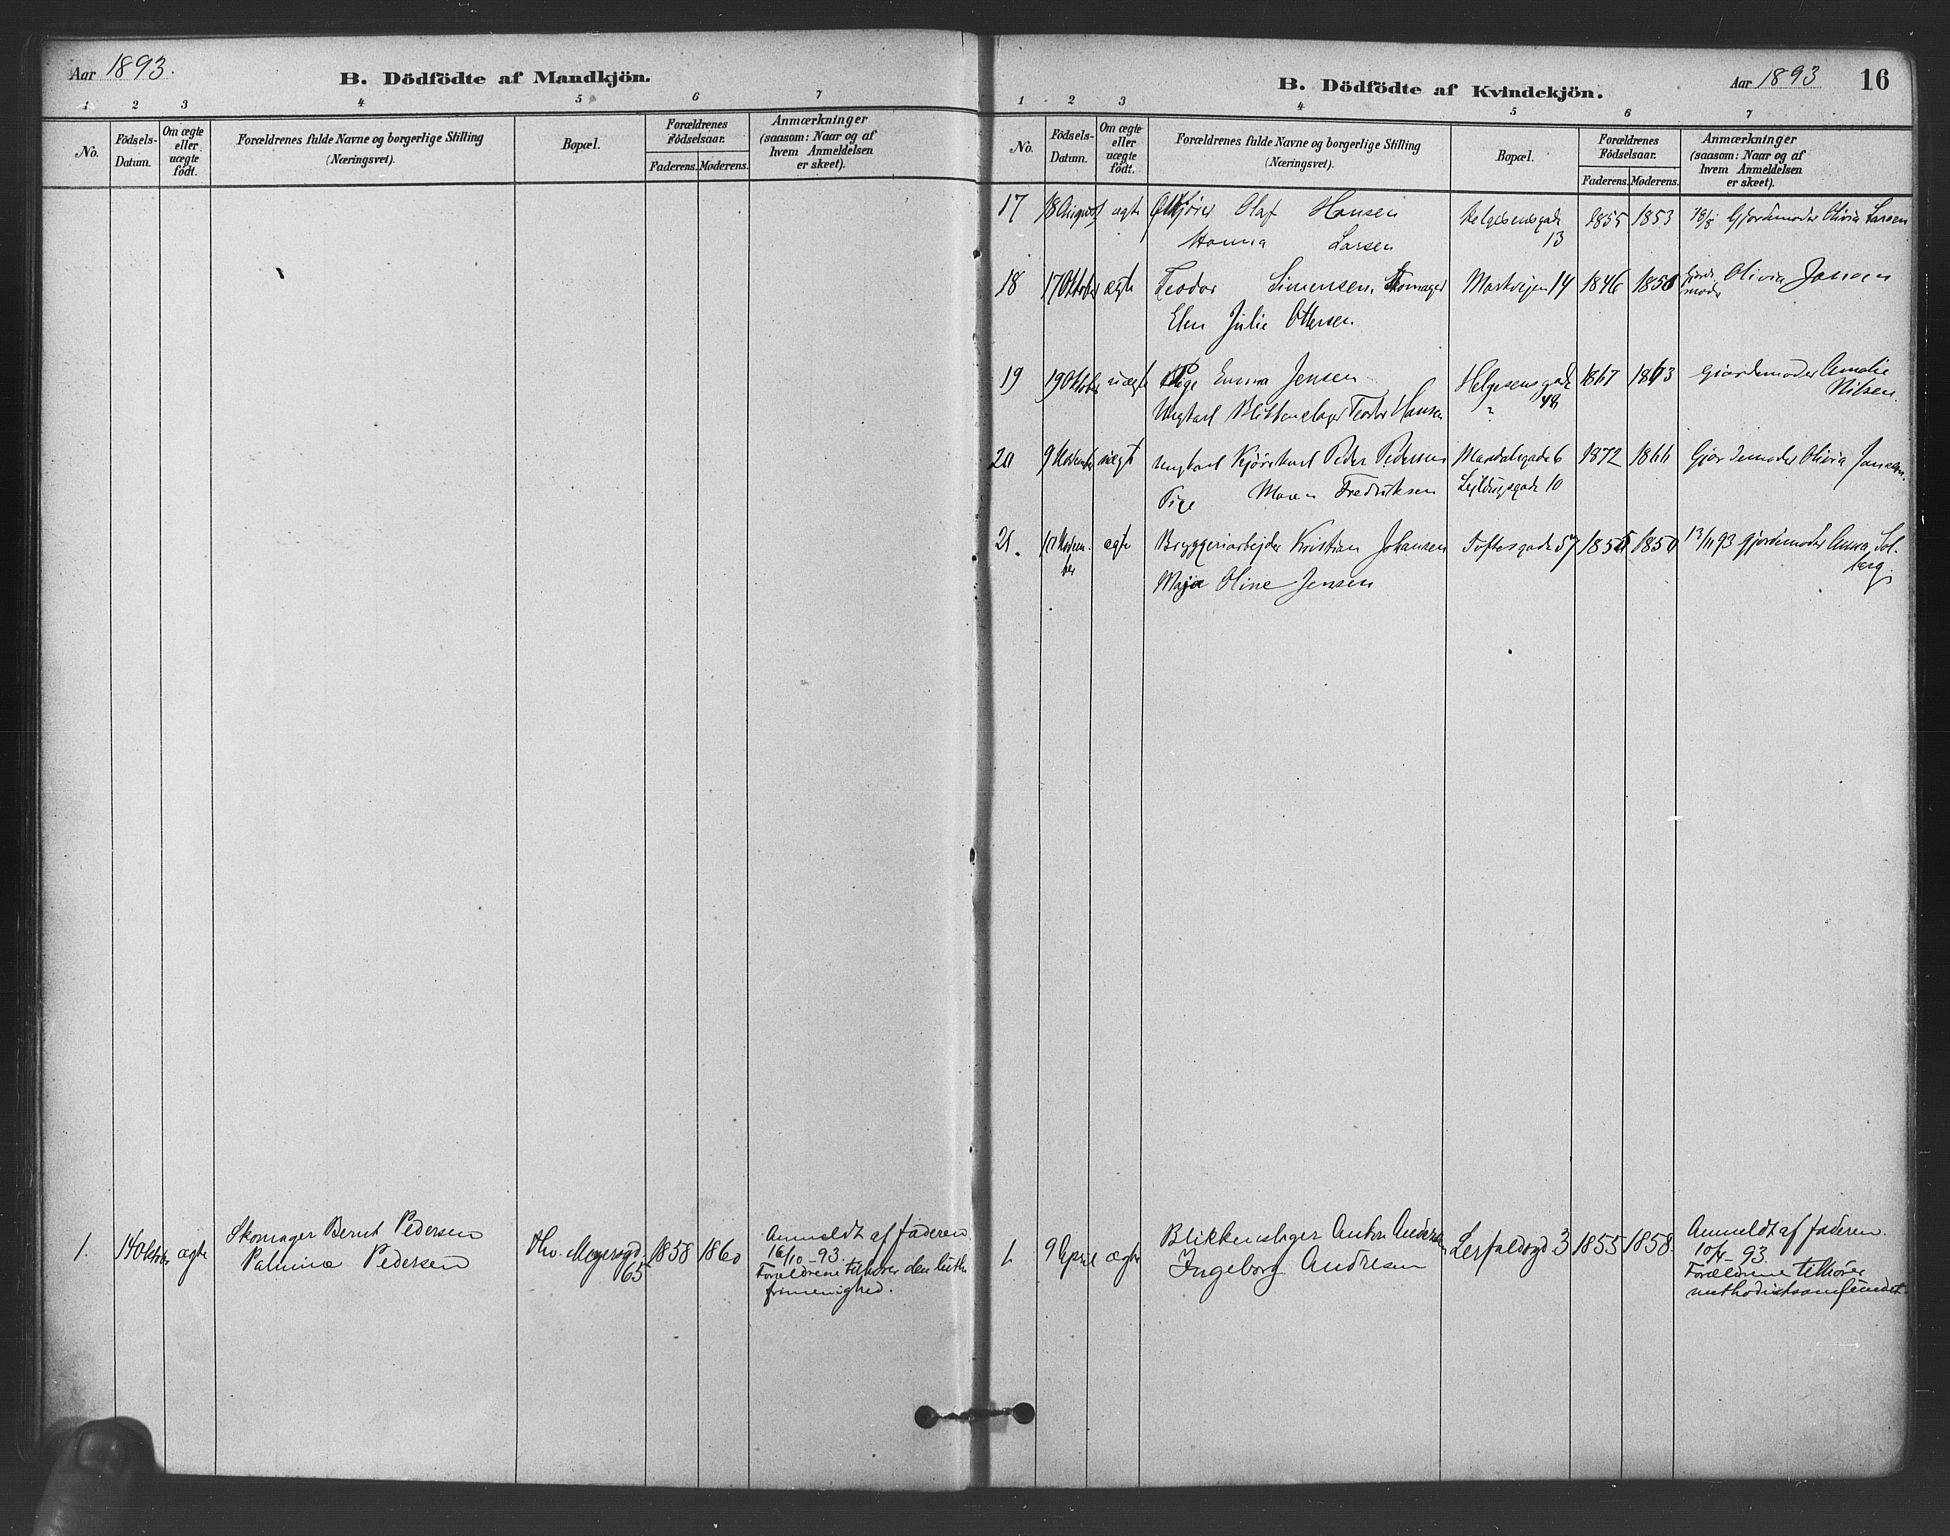 Aar 1893.
B. Dödfödte af Mandkjön.
1 2 3 4 5 6 7
No.
Födsels-Datum.
Om ægte eller uægte født.
Forældrenes fulde Navne og borgerlige Stilling (Næringsvei).
Bopæl.
Forældrenes Födselsaar.
Faderens. Moderens.
Anmærkninger (saasom: Naar og af hvem Anmeldelsen er skeet).
1. 14 Oktober ægte Skomager Bernt Pedersen
Palmine Pedersen
Thv. Meyersgd. 65
1858 1860
Anmeldt af faderen
16/10-93.
Forældrene tilhører den luth.
frimenighed.
B. Dödfödte af Kvindekjön.
Aar 1893 16
1 2 3 4 5 6 7
No.
Födsels-Datum.
Om ægte eller uægte födt.
Forældrenes fulde Navne og borgerlige Stilling (Næringsvei).
Bopæl.
Forældrenes Födselsaar.
Faderens. Moderens.
Anmærkninger (saasom: Naar og af hvem Anmeldelsen er skeet).
17 18 August ægte Olaf Hansen Helgesensgade 1855 1853 Gjordemoder Olivia Larsen
Hanna Larsen 13
18 17 Oktober ægte Teodor Simensen, Skomager Markvejen 14 1846 Olivia Jansen
Elen Julie Ottersen.
19 19 Oktober uægte Pige Emma Jensen Helgesensgade 1867 Gjordemoder Amalie
Ungkarl Blikkenslager Teodor Hansen " Nilsen.
20 9 November uægte Ungkarl Kjørekarl Peder Pedersen Mandalsgade 6 1872 1866 Gjordemoder Olivia Jansen.
Pige Maren Fredriksen 10
21. Novem-
ber
ægte Bryggeriarbejder Kristian Johansen Toftesgade 57 13/11 93 Gjordemoder Anna Sol-
berg.
Maja Oline Jensen
1. 9 April ægte Blikkenslager Anton Andresen
Ingeborg Andresen
Lerfaldsgd 3 1855 1858.
Anmeldt af faderen.
10/4-93.
Forældrene tilhører
methodistsamfundet.